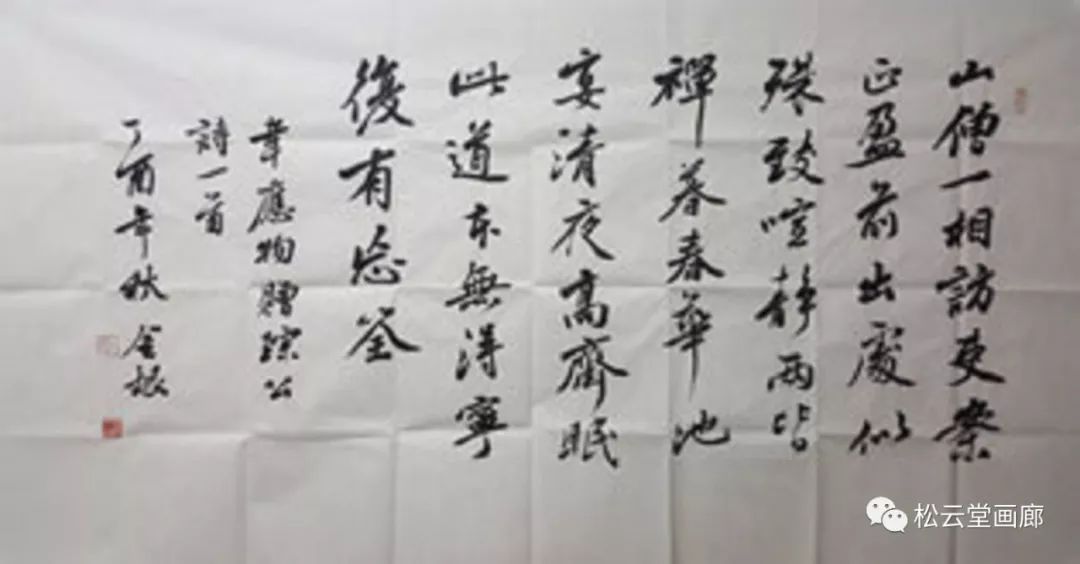 山僧一相訪吏案
正盈前出處似
殊致喧靜兩皆
禪暮春華池
宴清夜高齋眠
此道本無得寧
復有忘筌
韋應物贈琮公
詩一首
丁酉年秋金根
松云堂画廊